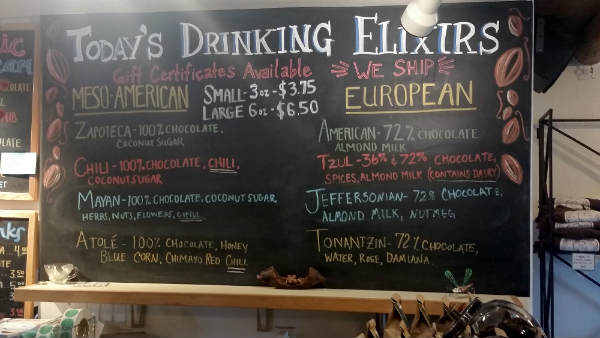 TODAY'S DRINKING ELIXIRS
Gift Certificates Available
WE SHIP
MESO-AMERICAN
SMALL-3oz-$3.75
LARGE 6oz-$6.50
ZAPOTECA-100% CHOCOLATE,
COCONUT SUGAR
CHILI-100% CHOCOLATE, CHILI,
COCONUT SUGAR
MAYAN-100% CHOCOLATE, COCONUT SUGAR
HERBS, NUTS, FLOWERS, CHILI
ATOLÉ - 100% CHOCOLATE, HONEY
BLUE CORN, CHIMAYO RED CHILI
EUROPEAN
AMERICAN-72% CHOCOLATE
ALMOND MILK
TZUL-36% & 72% CHOCOLATE,
SPICES, ALMOND MILK (CONTAINS DAIRY)
JEFFERSONIAN-72% CHOCOLATE,
ALMOND MILK, NUTMEG
TONANTZIN-72% CHOCOLATE,
WATER, ROSE, DAMIANA